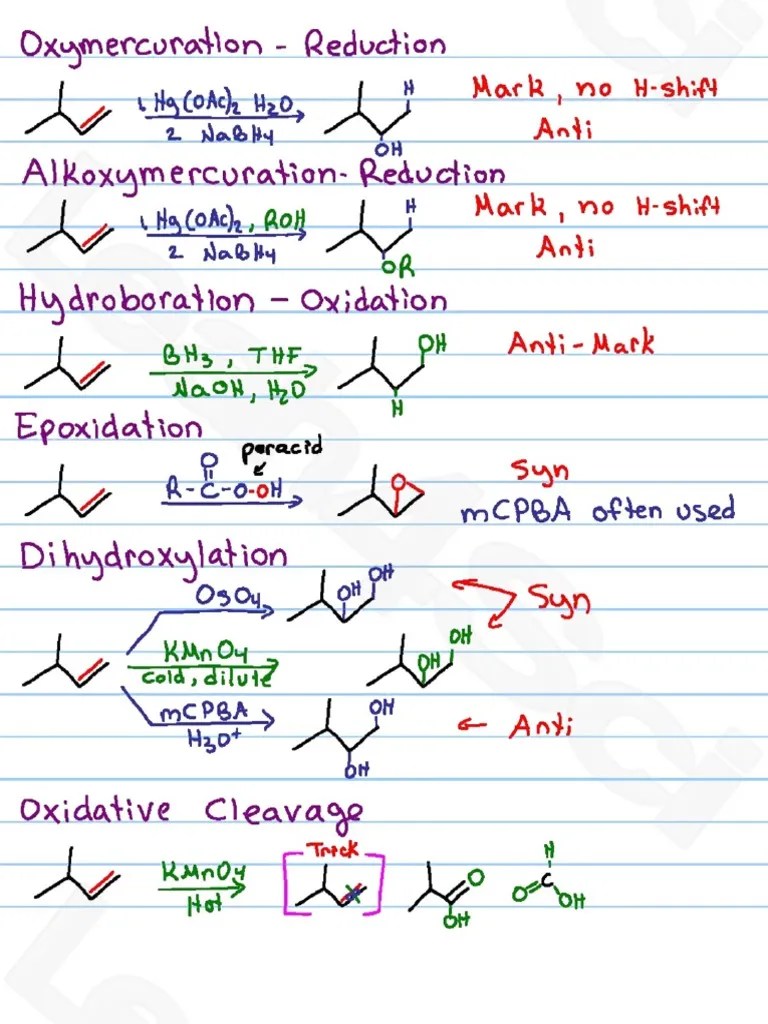 Oxymercuration - Reduction
1. Hg(OAc)2 H2O
2 NaBH4
H
OH
Mark, no H-shift
Anti
Alkoxymercuration-Reduction
1. Hg(OAc)2, ROH
2 NaBH4
H
OR
Mark, no H-shift
Anti
Hydroboration - Oxidation
BH3, THF
NaOH, H2O
OH
H
Anti-Mark
Epoxidation
peracid
O
R-C-O-OH
O
Syn
mCPBA often used
Dihydroxylation
OsO4
OH OH
Syn
KMnO4
cold, dilute
OH OH
mCPBA
H3O+
OH
OH
Anti
Oxidative Cleavage
KMnO4
Hot
Trick
O
OH
H
O C OH
Leah4Sci